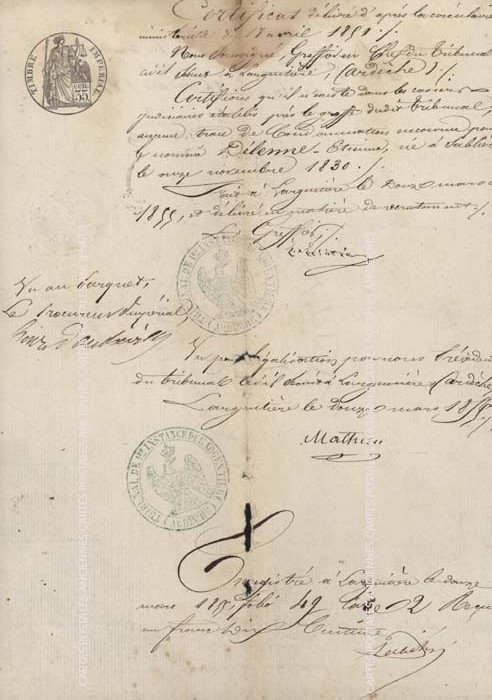 Certificat délivré d'après la circulaire
ministérielle du 18 avril 1851 /.
Nous soussigné, Greffier en Chef du Tribunal
civil séant à Largentière, (Ardèche) /.
Certifions qu'il n'existe dans les casiers
judiciaires établis près le greffe dudit tribunal,
aucune trace de Condamnation encourue pour
le nommé Dilenne Etienne, né à Sablières
le onze novembre 1830 /.
Fait à Largentière le douze mars
1855, et délivré en matière de recrutement /.
Le Greffier /.
TIMBRE IMPERIAL
35 cen
TRIBUNAL DE 1RE INSTANCE DE LARGENTIERE (ARDECHE)
Vu au Parquet,
Le Procureur Impérial,
Vu pour légalisation par nous Président
du tribunal Civil séant à Largentière (Ardèche)
Largentière le douze mars 1855 /.
Mathieu
TRIBUNAL DE 1RE INSTANCE DE LARGENTIERE (ARDECHE)
Enregistré à Largentière le douze
mars 1855, folio 49 case 2 Reçu
un franc dix Centimes
CARTES POSTALES ANCIENNES